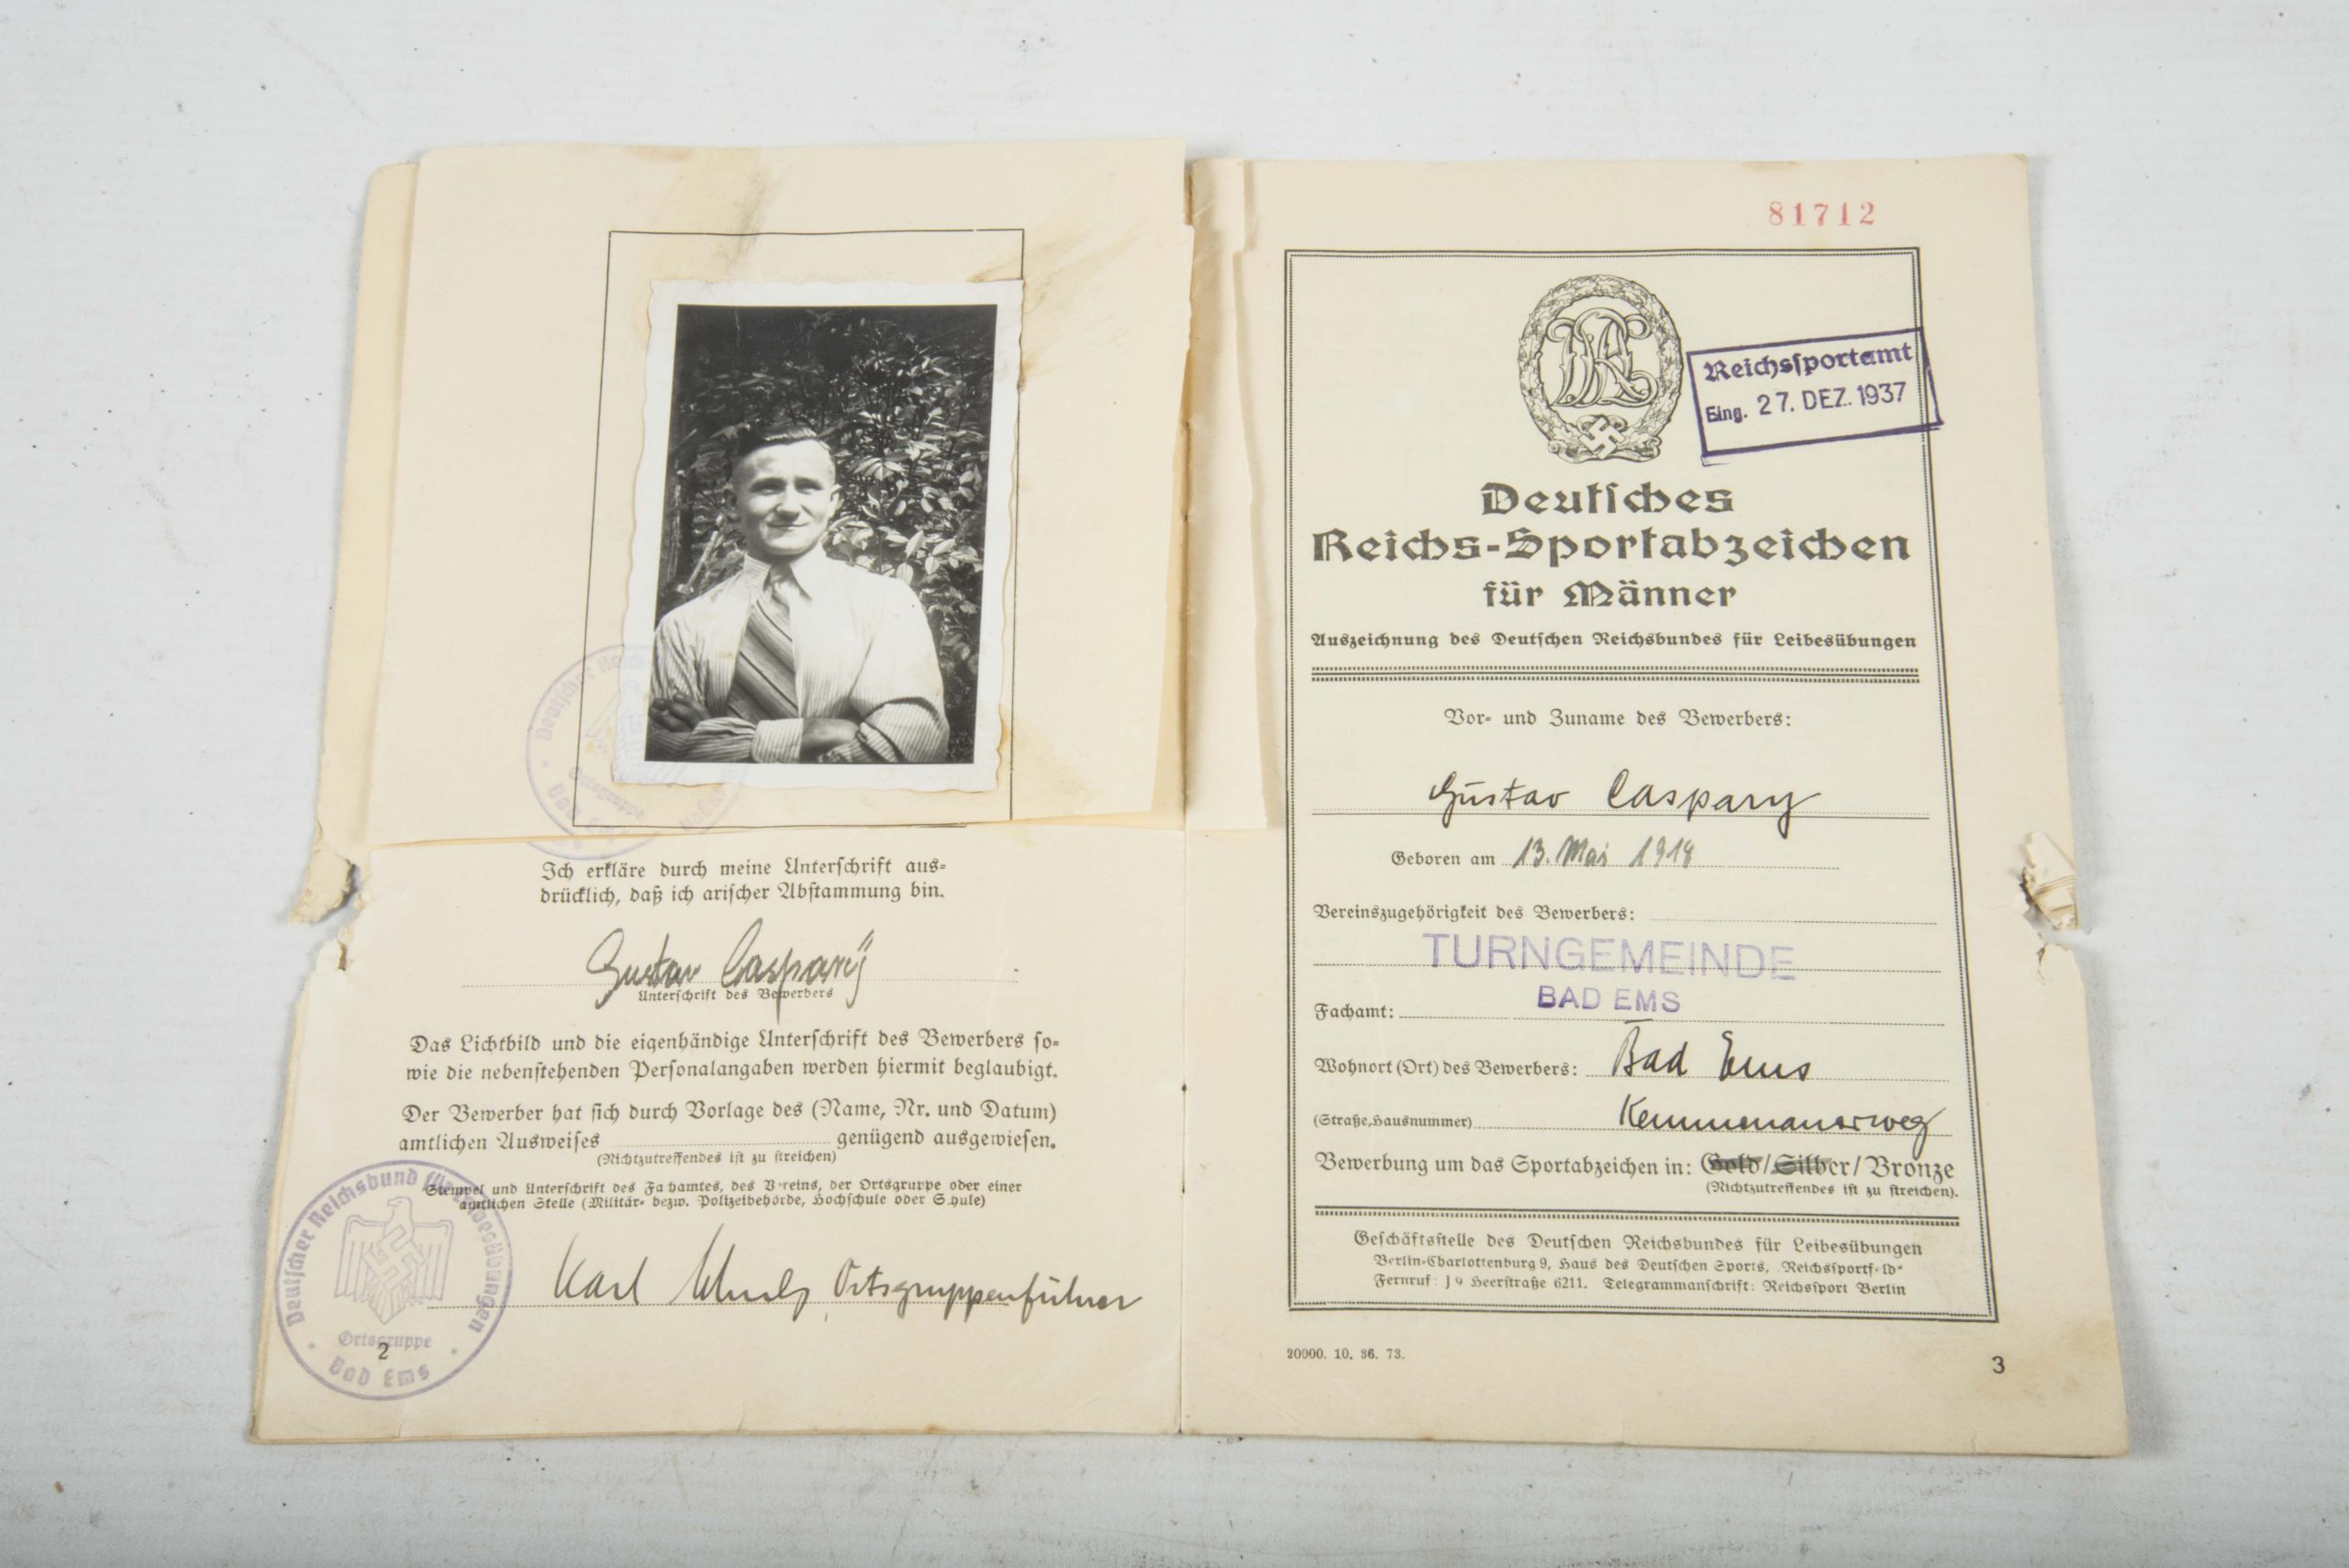 Ich erkläre durch meine Unterschrift aus-
drücklich, daß ich arischer Abstammung bin.
Gustav Caspary
Unterschrift des Bewerbers
Das Lichtbild und die eigenhändige Unterschrift des Bewerbers so-
wie die nebenstehenden Personalangaben werden hiermit beglaubigt.
Der Bewerber hat sich durch Vorlage des (Name, Nr. und Datum)
amtlichen Ausweises genügend ausgewiesen.
(Nichtzutreffendes ist zu streichen)
Stempel und Unterschrift des Fachamtes, des Vereins, der Ortsgruppe oder einer
amtlichen Stelle (Militär- bezw. Polizeibehörde, Hochschule oder Schule)
Karl Ortsgruppenführer
Deutscher Reichsbund für Leibesübungen
Ortsgruppe
Bad Ems
2
81712
DRL
Reichssportamt
Eing. 27. DEZ. 1937
Deutsches
Reichs-Sportabzeichen
für Männer
Auszeichnung des Deutschen Reichsbundes für Leibesübungen
Vor- und Zuname des Bewerbers:
Gustav Caspary
Geboren am 13. Mai 1918
Vereinszugehörigkeit des Bewerbers:
TURNGEMEINDE
BAD EMS
Fachamt:
Wohnort (Ort) des Bewerbers: Bad Ems
(Straße, Hausnummer) Kemmenauerweg
Bewerbung um das Sportabzeichen in: Gold/Silber/Bronze
(Nichtzutreffendes ist zu streichen).
Geschäftsstelle des Deutschen Reichsbundes für Leibesübungen
Berlin-Charlottenburg 9, Haus des Deutschen Sports, „Reichssportfeld"
Fernruf: J 9 Heerstraße 6211. Telegrammanschrift: Reichssport Berlin
20000. 10. 36. 73.
3